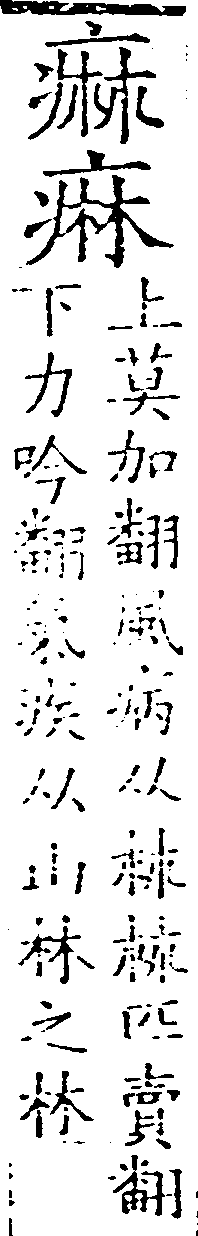 痳痳
上莫加翻風病从𣏟𣏟匹賣翻
下力吟翻疾从山林之林